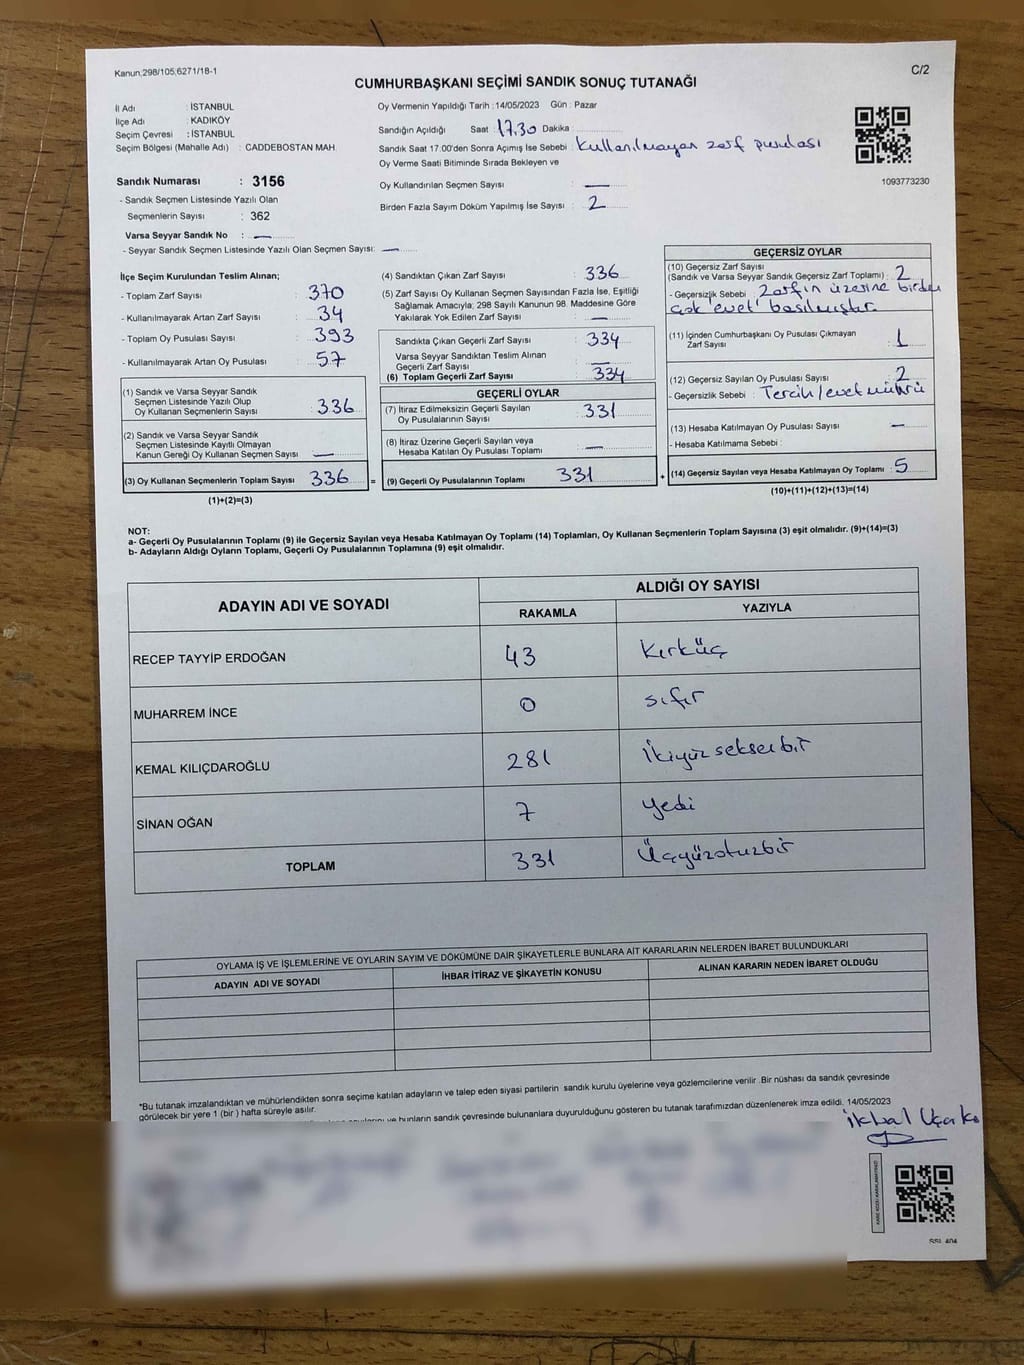 Kanun;298/105;6271/18-1
C/2
CUMHURBAŞKANI SEÇİMİ SANDIK SONUÇ TUTANAĞI
İl Adı : İSTANBUL
İlçe Adı : KADIKÖY
Seçim Çevresi : İSTANBUL
Seçim Bölgesi (Mahalle Adı) : CADDEBOSTAN MAH.
Sandık Numarası : 3156
- Sandık Seçmen Listesinde Yazılı Olan
Seçmenlerin Sayısı : 362
Varsa Seyyar Sandık No : —
- Seyyar Sandık Seçmen Listesinde Yazılı Olan Seçmen Sayısı: —
Oy Vermenin Yapıldığı Tarih : 14/05/2023 Gün : Pazar
Sandığın Açıldığı Saat 17.30 Dakika
Sandık Saat 17.00'den Sonra Açımış İse Sebebi : Kullanılmayan zarf pusulası
Oy Verme Saati Bitiminde Sırada Bekleyen ve
Oy Kullandırılan Seçmen Sayısı : —
Birden Fazla Sayım Döküm Yapılmış İse Sayısı : 2
1093773230
İlçe Seçim Kurulundan Teslim Alınan;
- Toplam Zarf Sayısı : 370
- Kullanılmayarak Artan Zarf Sayısı : 34
- Toplam Oy Pusulası Sayısı : 393
- Kullanılmayarak Artan Oy Pusulası : 57
(1) Sandık ve Varsa Seyyar Sandık
Seçmen Listesinde Yazılı Olup
Oy Kullanan Seçmenlerin Sayısı : 336
(2) Sandık ve Varsa Seyyar Sandık
Seçmen Listesinde Kayıtlı Olmayan
Kanun Gereği Oy Kullanan Seçmen Sayısı : —
(3) Oy Kullanan Seçmenlerin Toplam Sayısı : 336 =
(1)+(2)=(3)
(4) Sandıktan Çıkan Zarf Sayısı : 336
(5) Zarf Sayısı Oy Kullanan Seçmen Sayısından Fazla İse, Eşitliği
Sağlamak Amacıyla; 298 Sayılı Kanunun 98. Maddesine Göre
Yakılarak Yok Edilen Zarf Sayısı : —
Sandıkta Çıkan Geçerli Zarf Sayısı : 334
Varsa Seyyar Sandıktan Teslim Alınan
Geçerli Zarf Sayısı : —
(6) Toplam Geçerli Zarf Sayısı : 334
GEÇERLİ OYLAR
(7) İtiraz Edilmeksizin Geçerli Sayılan
Oy Pusulalarının Sayısı : 331
(8) İtiraz Üzerine Geçerli Sayılan veya
Hesaba Katılan Oy Pusulası Toplamı : —
(9) Geçerli Oy Pusulalarının Toplamı : 331 +
GEÇERSİZ OYLAR
(10) Geçersiz Zarf Sayısı
(Sandık ve Varsa Seyyar Sandık Geçersiz Zarf Toplamı) : 2
- Geçersizlik Sebebi : Zarfın üzerine birden
çok 'evet' basılmıştır.
(11) İçinden Cumhurbaşkanı Oy Pusulası Çıkmayan
Zarf Sayısı : 1
(12) Geçersiz Sayılan Oy Pusulası Sayısı : 2
- Geçersizlik Sebebi : Tercih/evet mührü
(13) Hesaba Katılmayan Oy Pusulası Sayısı : —
- Hesaba Katılmama Sebebi :
(14) Geçersiz Sayılan veya Hesaba Katılmayan Oy Toplamı : 5
(10)+(11)+(12)+(13)=(14)
NOT:
a- Geçerli Oy Pusulalarının Toplamı (9) ile Geçersiz Sayılan veya Hesaba Katılmayan Oy Toplamı (14) Toplamları, Oy Kullanan Seçmenlerin Toplam Sayısına (3) eşit olmalıdır. (9)+(14)=(3)
b- Adayların Aldığı Oyların Toplamı, Geçerli Oy Pusulalarının Toplamına (9) eşit olmalıdır.
ADAYIN ADI VE SOYADI
ALDIĞI OY SAYISI
RAKAMLA YAZIYLA
RECEP TAYYİP ERDOĞAN 43 Kırküç
MUHARREM İNCE 0 sıfır
KEMAL KILIÇDAROĞLU 281 İkiyüz seksenbir
SİNAN OĞAN 7 yedi
TOPLAM 331 Üçyüzotuzbir
OYLAMA İŞ VE İŞLEMLERİNE VE OYLARIN SAYIM VE DÖKÜMÜNE DAİR ŞİKAYETLERLE BUNLARA AİT KARARLARIN NELERDEN İBARET BULUNDUKLARI
ADAYIN ADI VE SOYADI İHBAR İTİRAZ VE ŞİKAYETİN KONUSU ALINAN KARARIN NEDEN İBARET OLDUĞU
*Bu tutanak imzalandıktan ve mühürlendikten sonra seçime katılan adayların ve talep eden siyasi partilerin sandık kurulu üyelerine veya gözlemcilerine verilir .Bir nüshası da sandık çevresinde
görülecek bir yere 1 (bir ) hafta süreyle asılır.
ve bunların sandık çevresinde bulunanlara duyurulduğunu gösteren bu tutanak tarafımızdan düzenlenerek imza edildi. 14/05/2023
İkbal